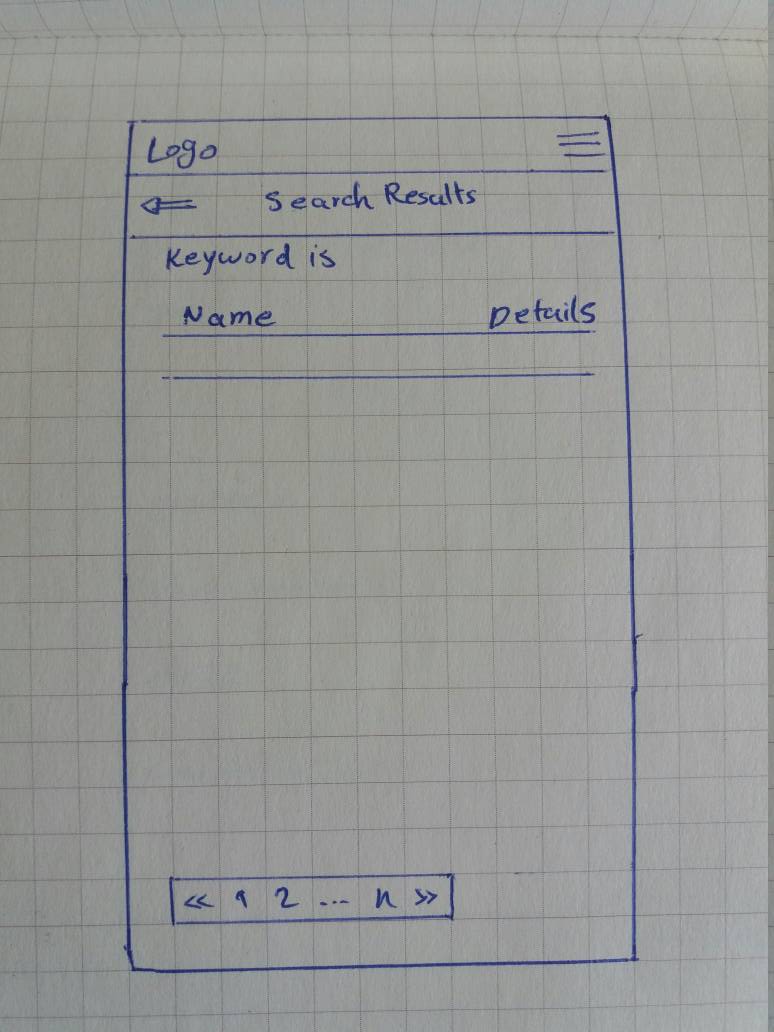 Logo
Search Results
Keyword is
Name Details
<< 1 2 ... n >>